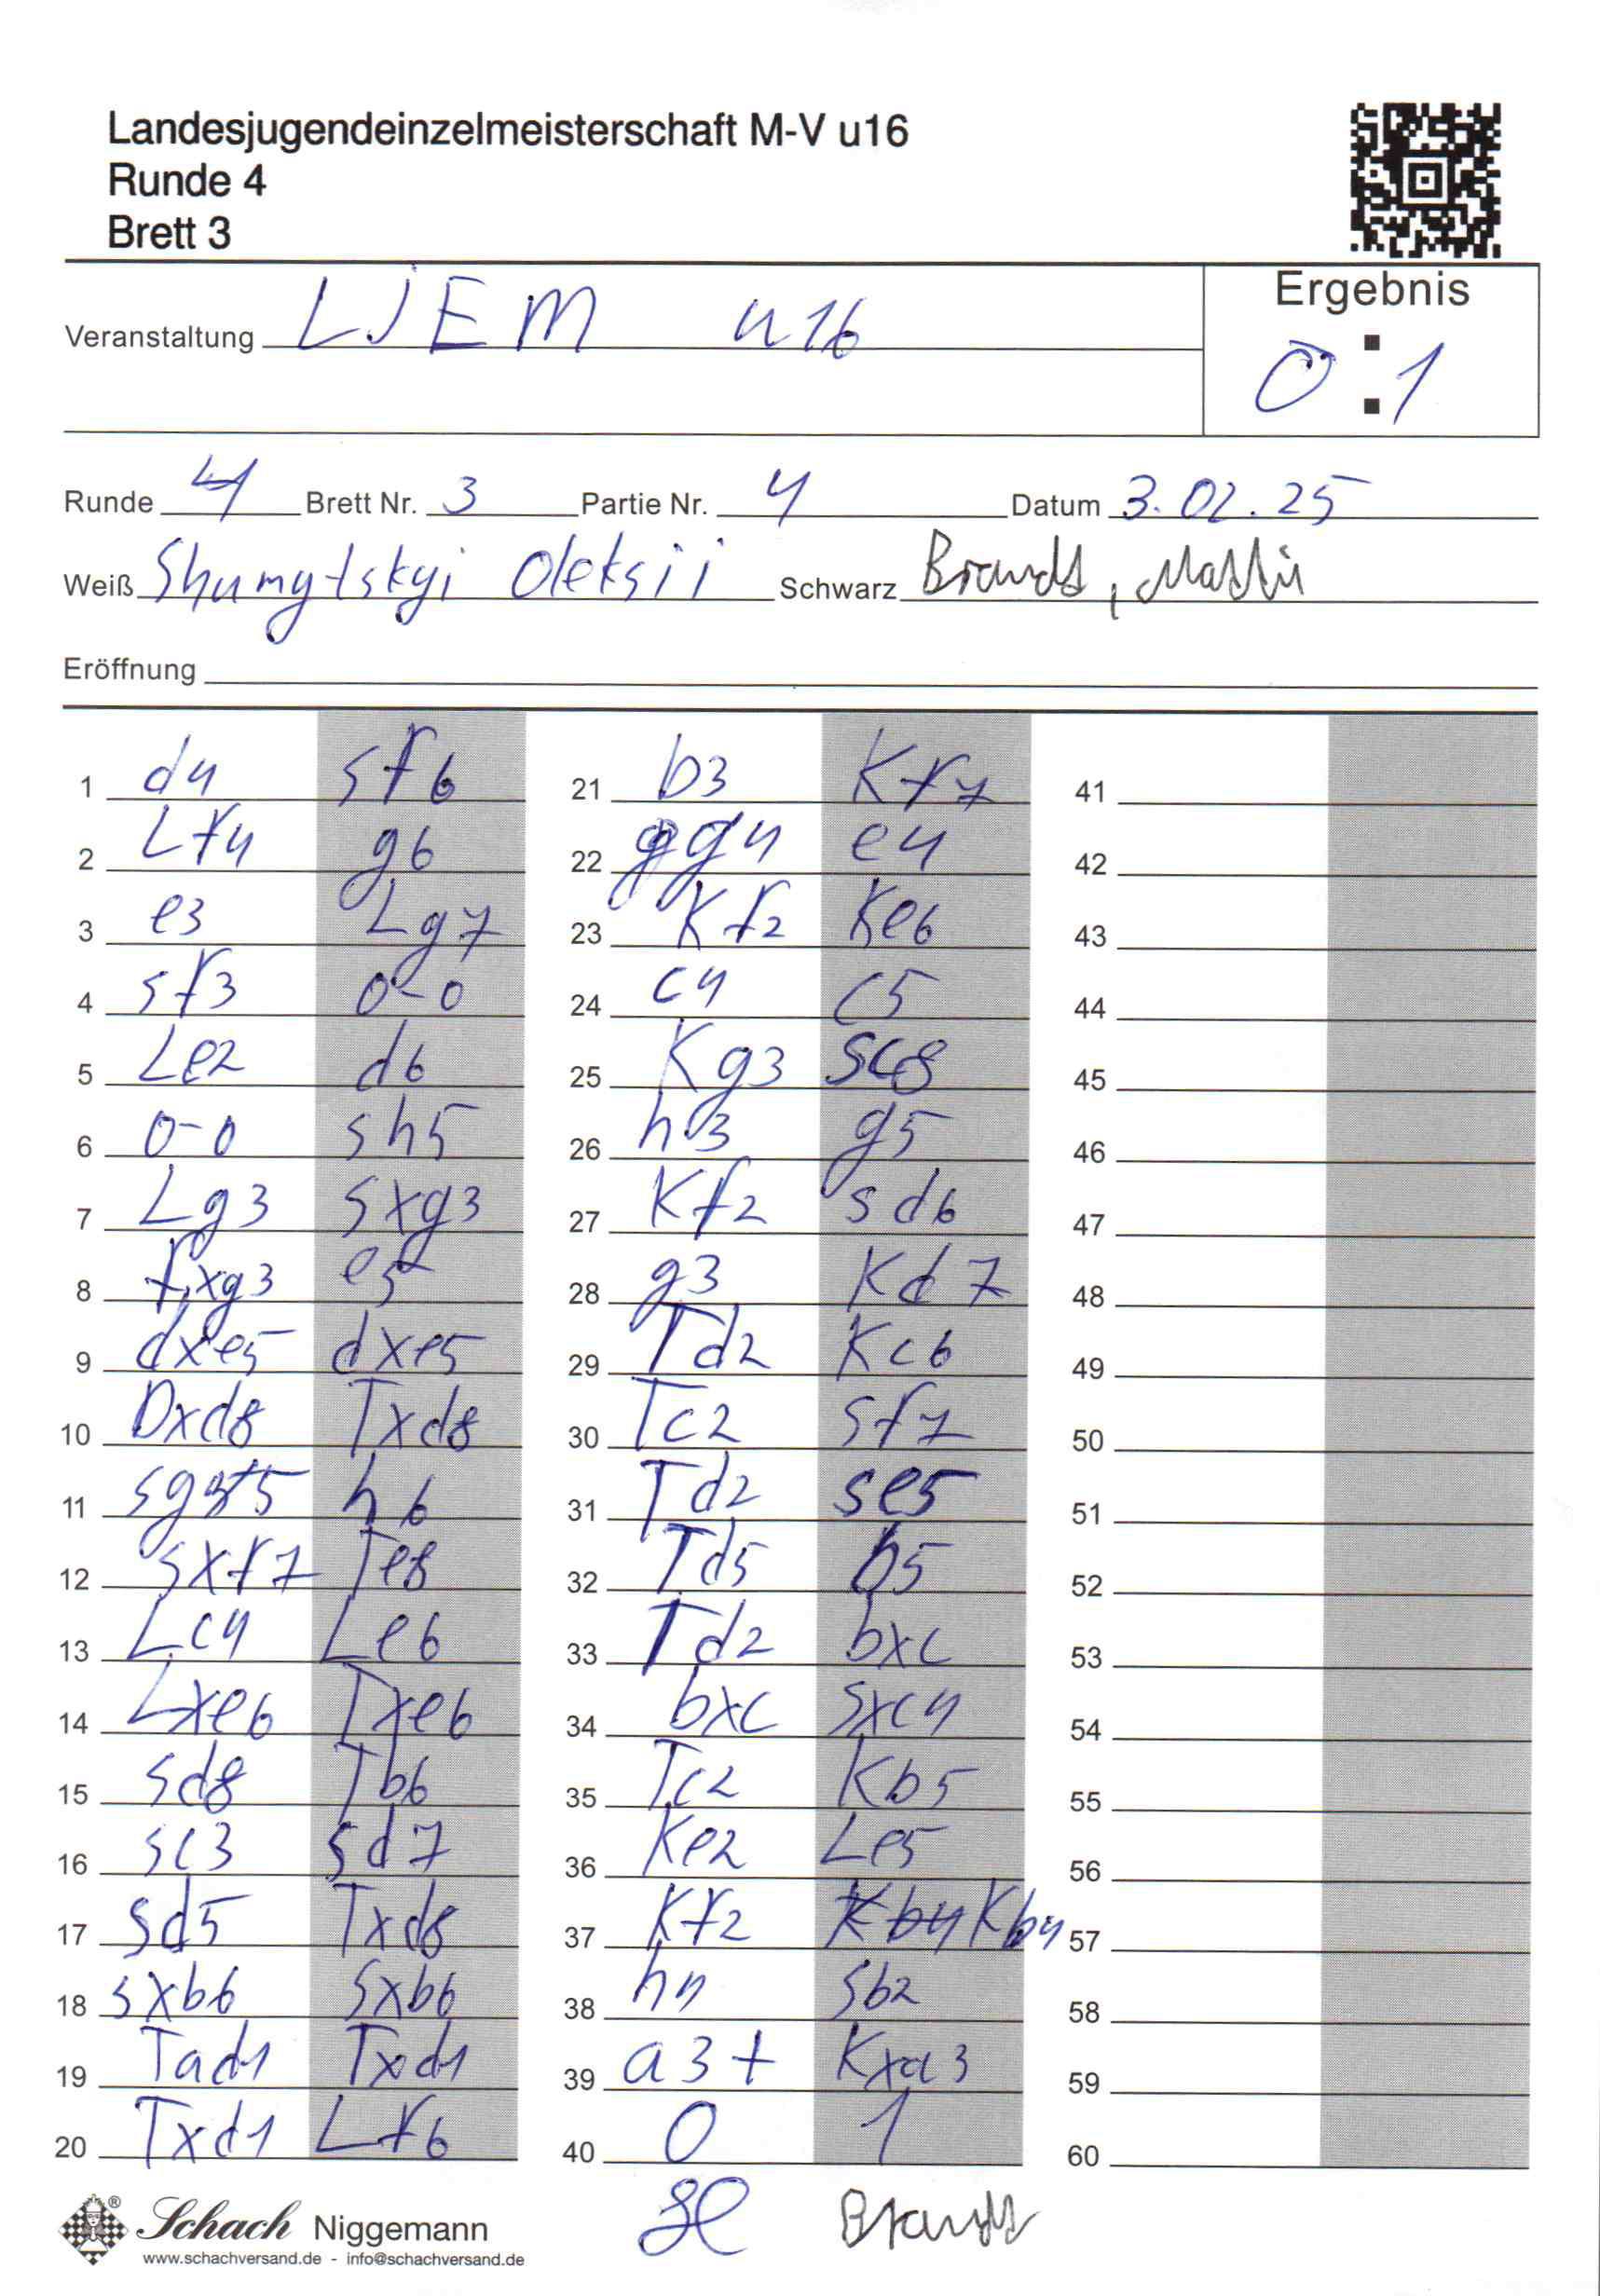 Landesjugendeinzelmeisterschaft M-V u16
Runde 4
Brett 3
Ergebnis
Veranstaltung LJEM u16
0:1
Runde 4 Brett Nr. 3 Partie Nr. 4 Datum 3.02.25
Weiß Shumytskyi Oleksii Schwarz Brandt,
Eröffnung
1 d4 Sf6 21 b3 Kf7 41
2 Lf4 g6 22 g4 e4 42
3 e3 Lg7 23 Kf2 Ke6 43
4 Sf3 0-0 24 c4 c5 44
5 Le2 d6 25 Kg3 Sc8 45
6 0-0 Sh5 26 h3 g5 46
7 Lg3 Sxg3 27 Kf2 Sd6 47
8 fxg3 e5 28 g3 Kd7 48
9 dxe5 dxe5 29 Td2 Kc6 49
10 Dxd8 Txd8 30 Tc2 Sf7 50
11 Sg5 h6 31 Td2 Se5 51
12 Sxf7 Te8 32 Td5 b5 52
13 Lc4 Le6 33 Td2 bxc 53
14 Lxe6 Txe6 34 bxc Sxc4 54
15 Sd8 Tb6 35 Tc2 Kb5 55
16 Sc3 Sd7 36 Ke2 Le5 56
17 Sd5 Txd8 37 Kf2 Kb4 Kb4 57
18 Sxb6 Sxb6 38 h4 Sb2 58
19 Tad1 Txd1 39 a3+ Kxa3 59
20 Txd1 Lf6 40 0 1 60
Schach Niggemann
www.schachversand.de - info@schachversand.de
Brandt